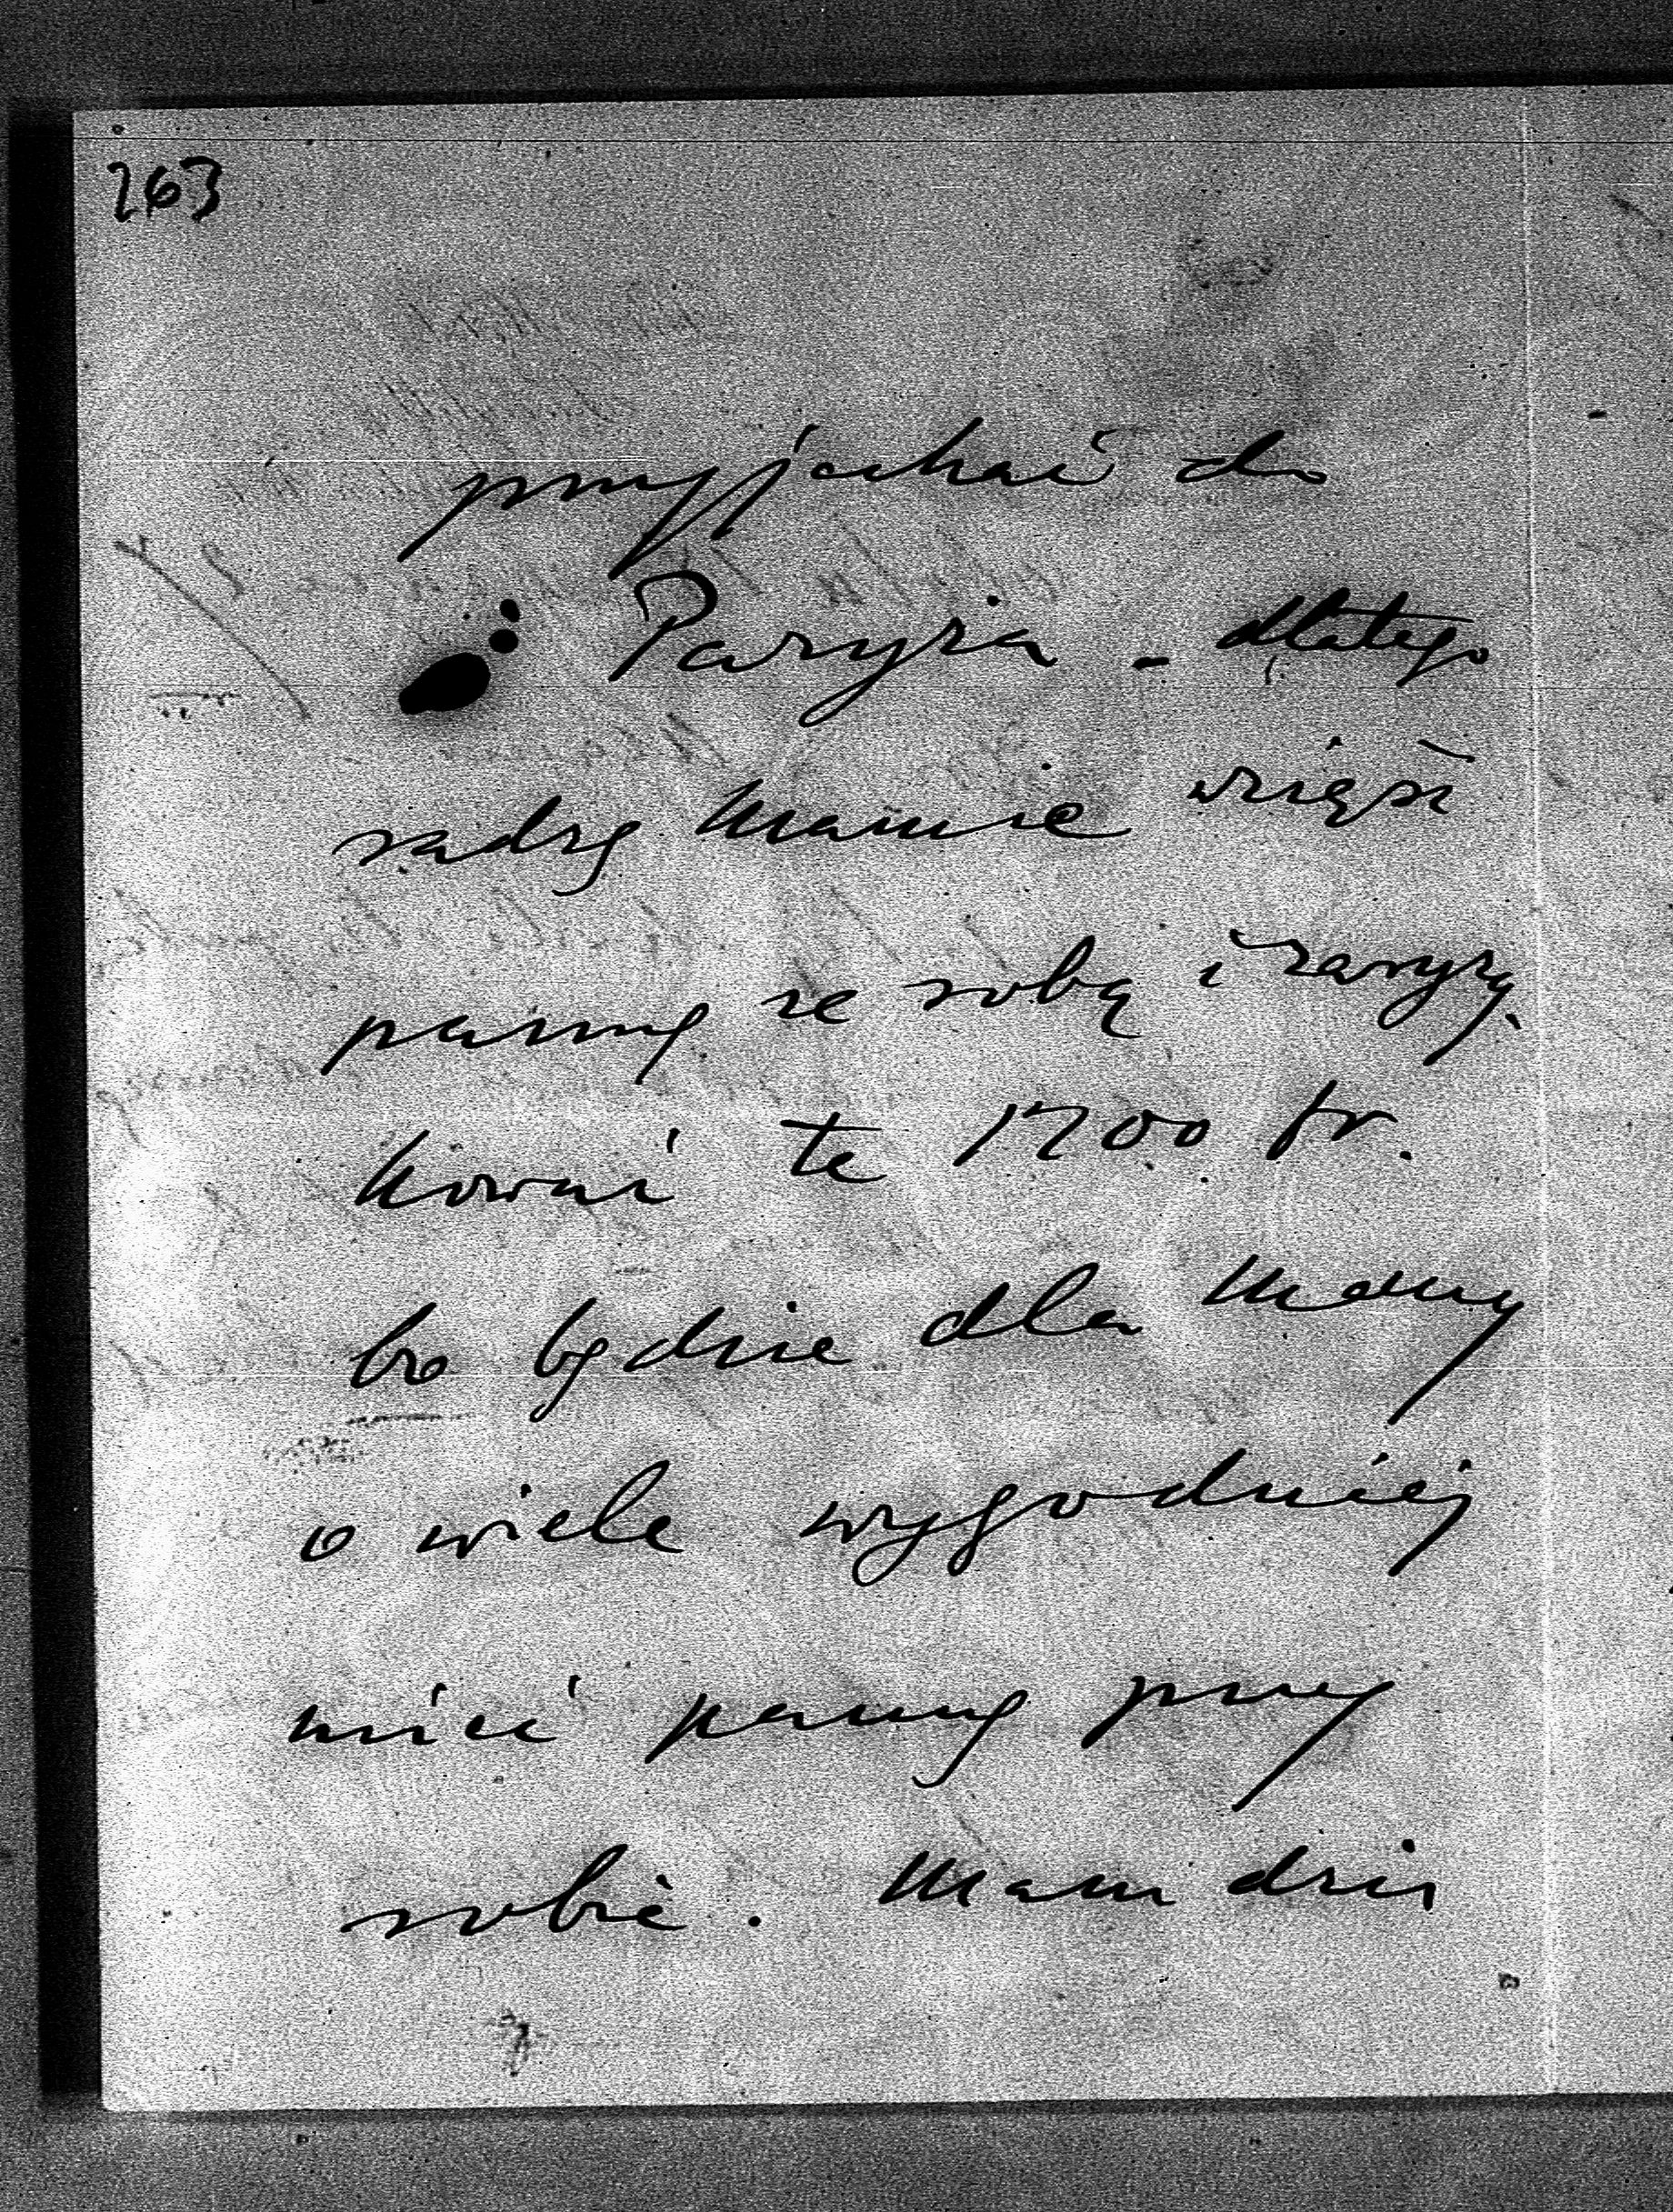 263
przyjechać do
Paryża - dlatego
radzę Mamie wziąść
pannę ze sobą i zaryzy-
kować te 1200 fr.
bo będzie dla Mamy
o wiele wygodniej
mieć pannę przy
sobie. Mam dziś